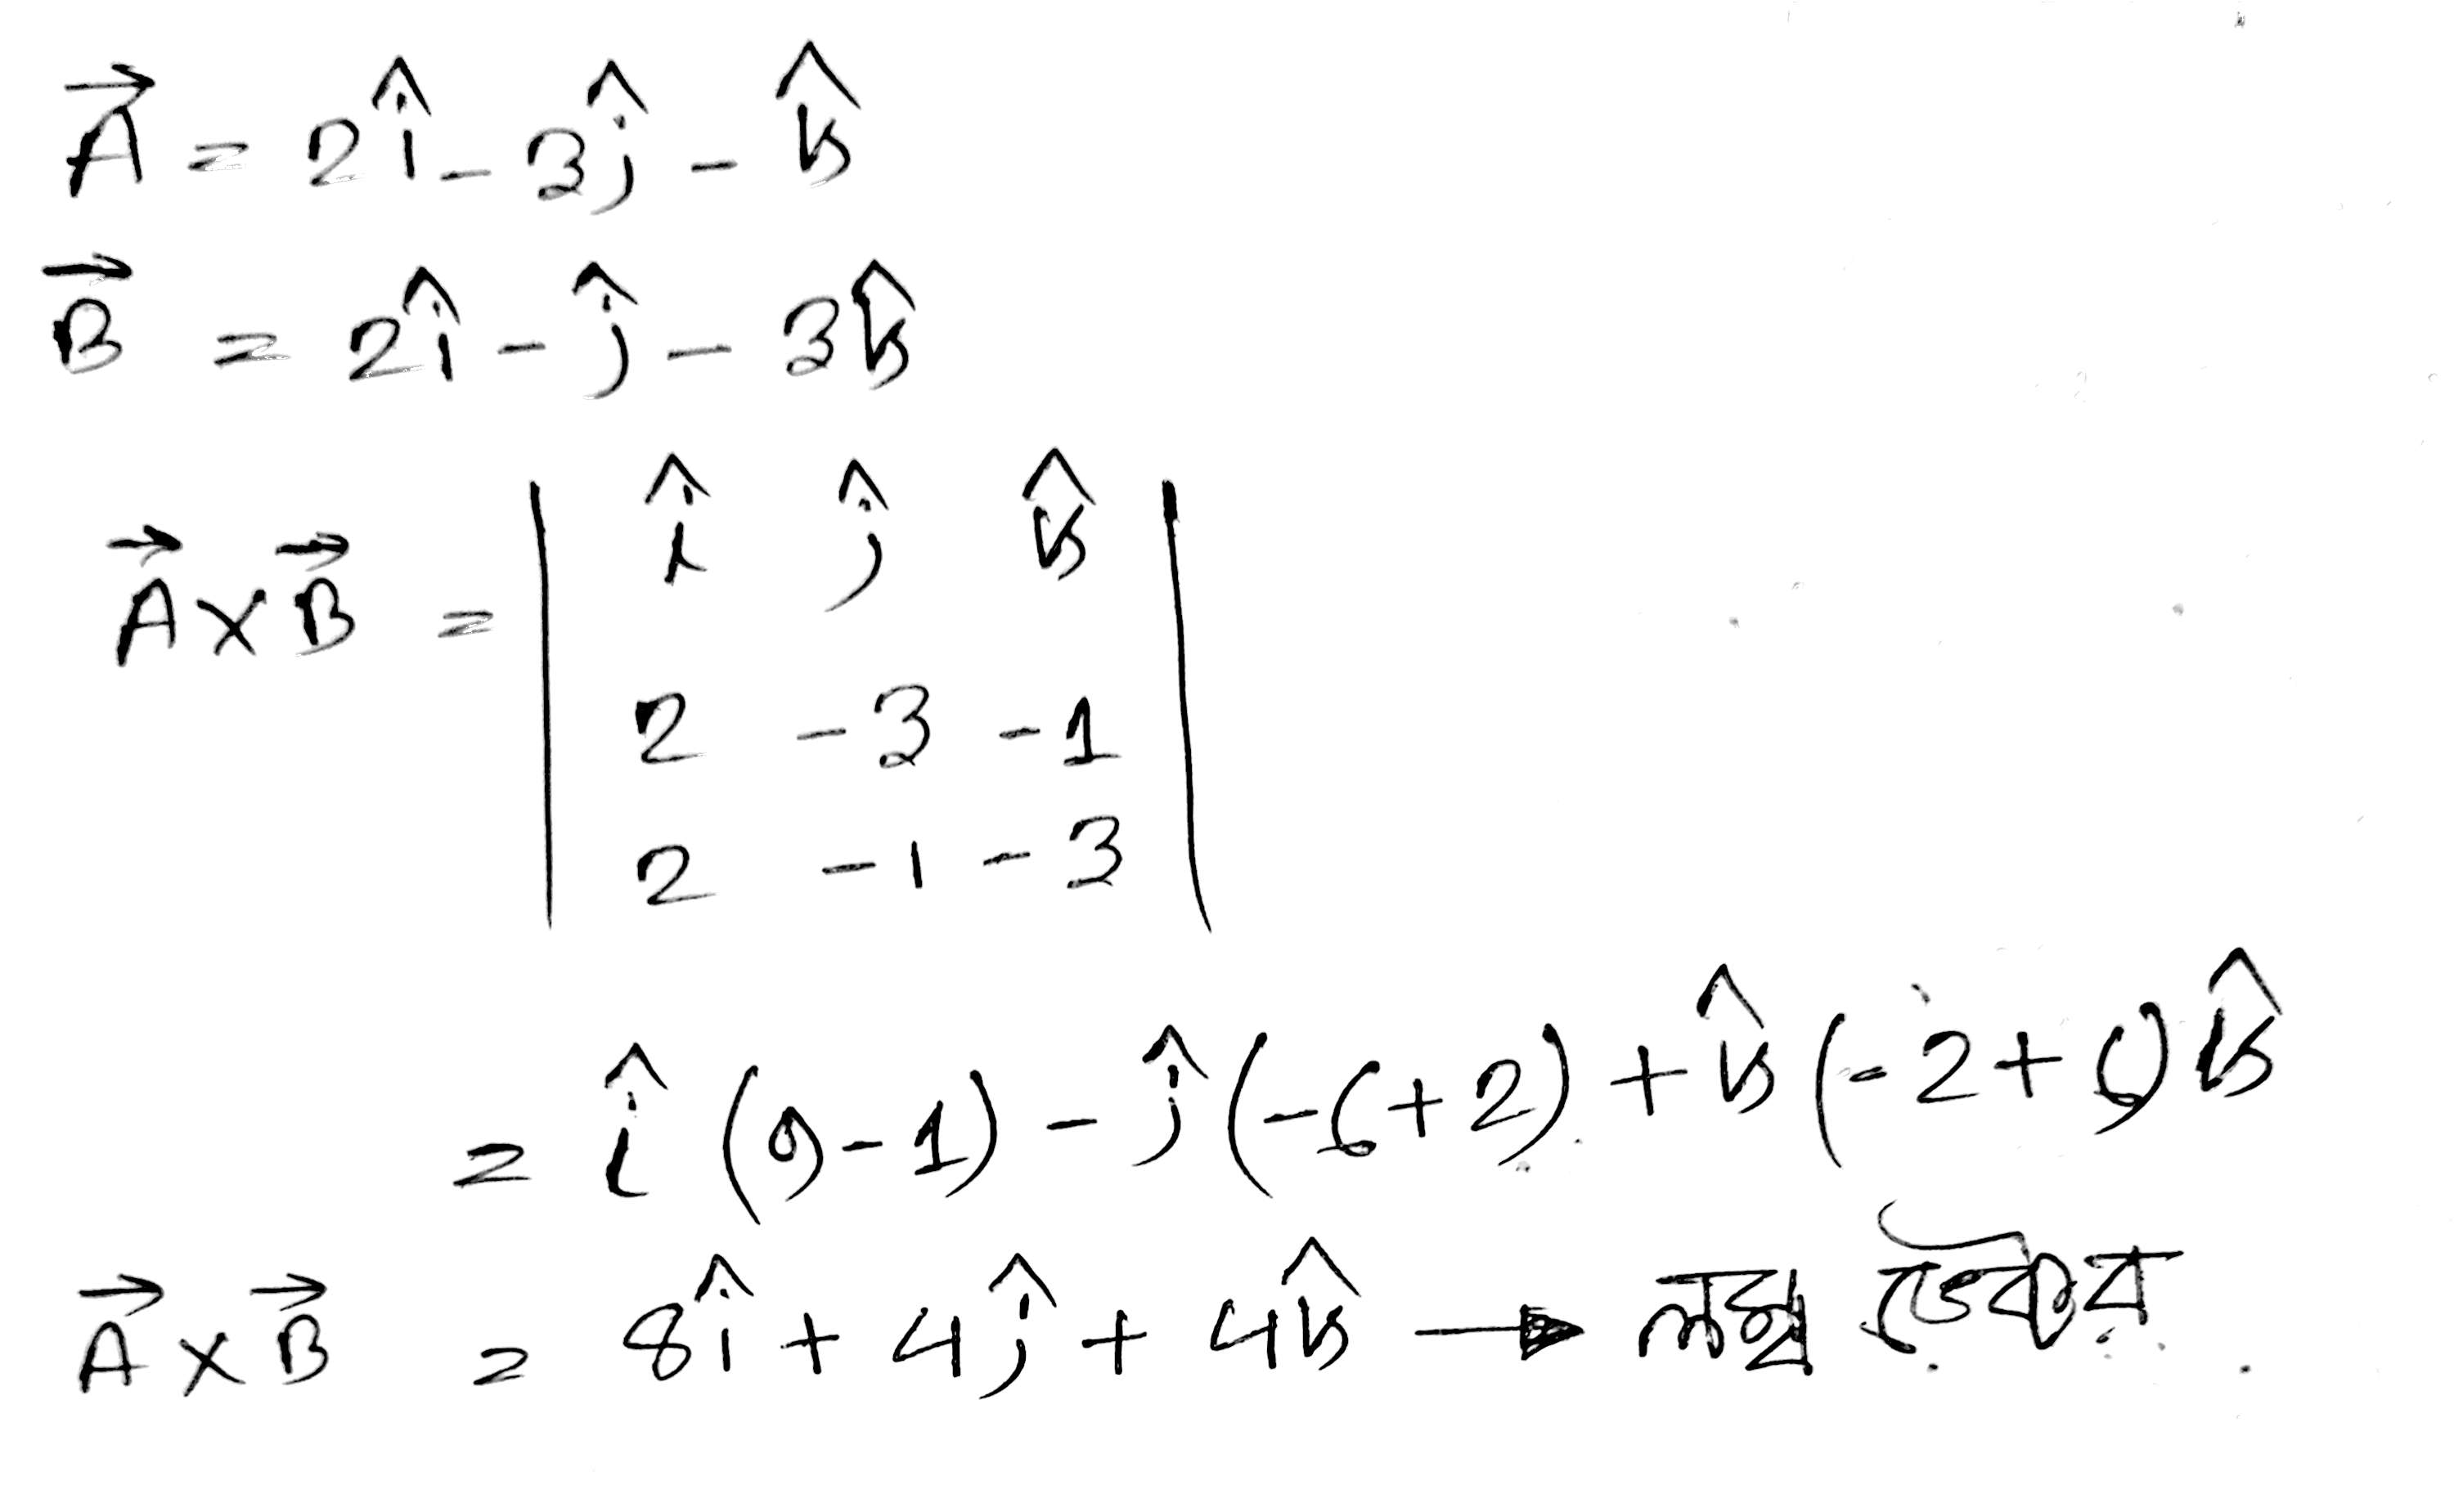 $\vec{A} = 2\hat{i} - 3\hat{j} - \hat{k}$
$\vec{B} = 2\hat{i} - \hat{j} - 3\hat{k}$
$\vec{A} \times \vec{B} = \begin{vmatrix} \hat{i} & \hat{j} & \hat{k} \\ 2 & -3 & -1 \\ 2 & -1 & -3 \end{vmatrix}$
$= \hat{i}(9-1) - \hat{j}(-6+2) + \hat{k}(-2+6)\hat{k}$
$\vec{A} \times \vec{B} = 8\hat{i} + 4\hat{j} + 4\hat{k} \rightarrow$ লম্ব ভেক্টর